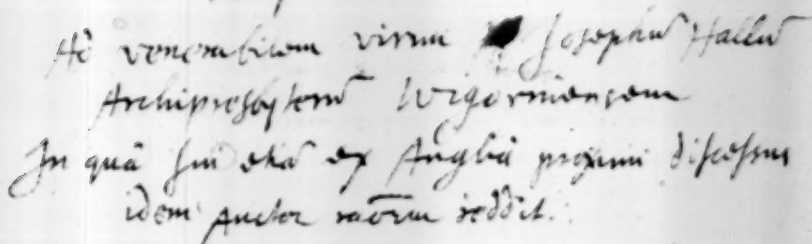 Ad venerabilem virum Josephū Hallū
Archipresbyterū Wigorniensem
In quâ sui etiā ex Angliâ proximi discessus
idem Auctor raõem reddit.